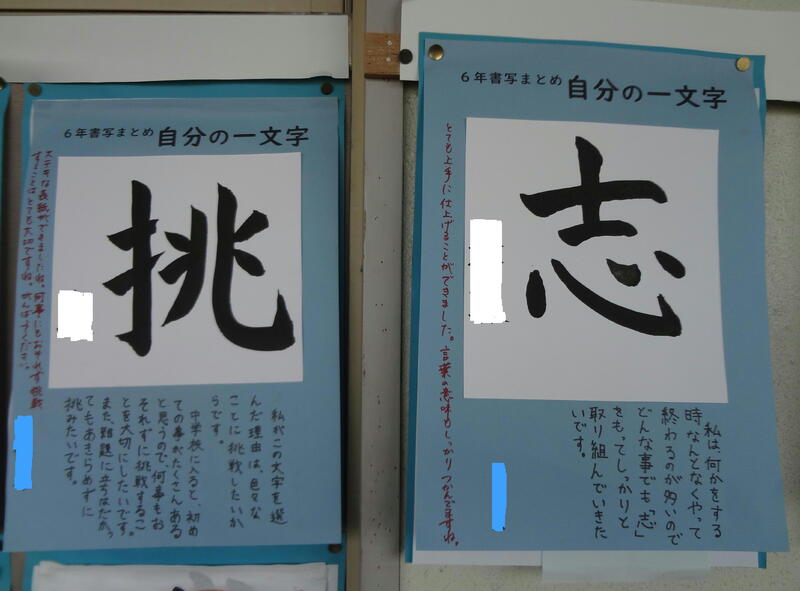 6年書写まとめ 自分の一文字
挑
ステキな表紙ができましたね。何事にもおそれず挑戦
することはとても大切ですね。がんばってください。
私がこの文字を選
んだ理由は、色々な
ことに挑戦したいか
らです。
中学校に入ると、初め
ての事がたくさんある
と思うので、何事もお
それずに挑戦するこ
とを大切にしたいです。
また、難題に立ちはだかっ
てもあきらめずに
挑みたいです。
6年書写まとめ 自分の一文字
志
とても上手に仕上げることができました。言葉の意味もしっかりつかんでますね。
私は何かをする
時なんとなくやって
終わるのが多いので
どんな事でも「志」
をもってしっかりと
取り組んでいきた
いです。